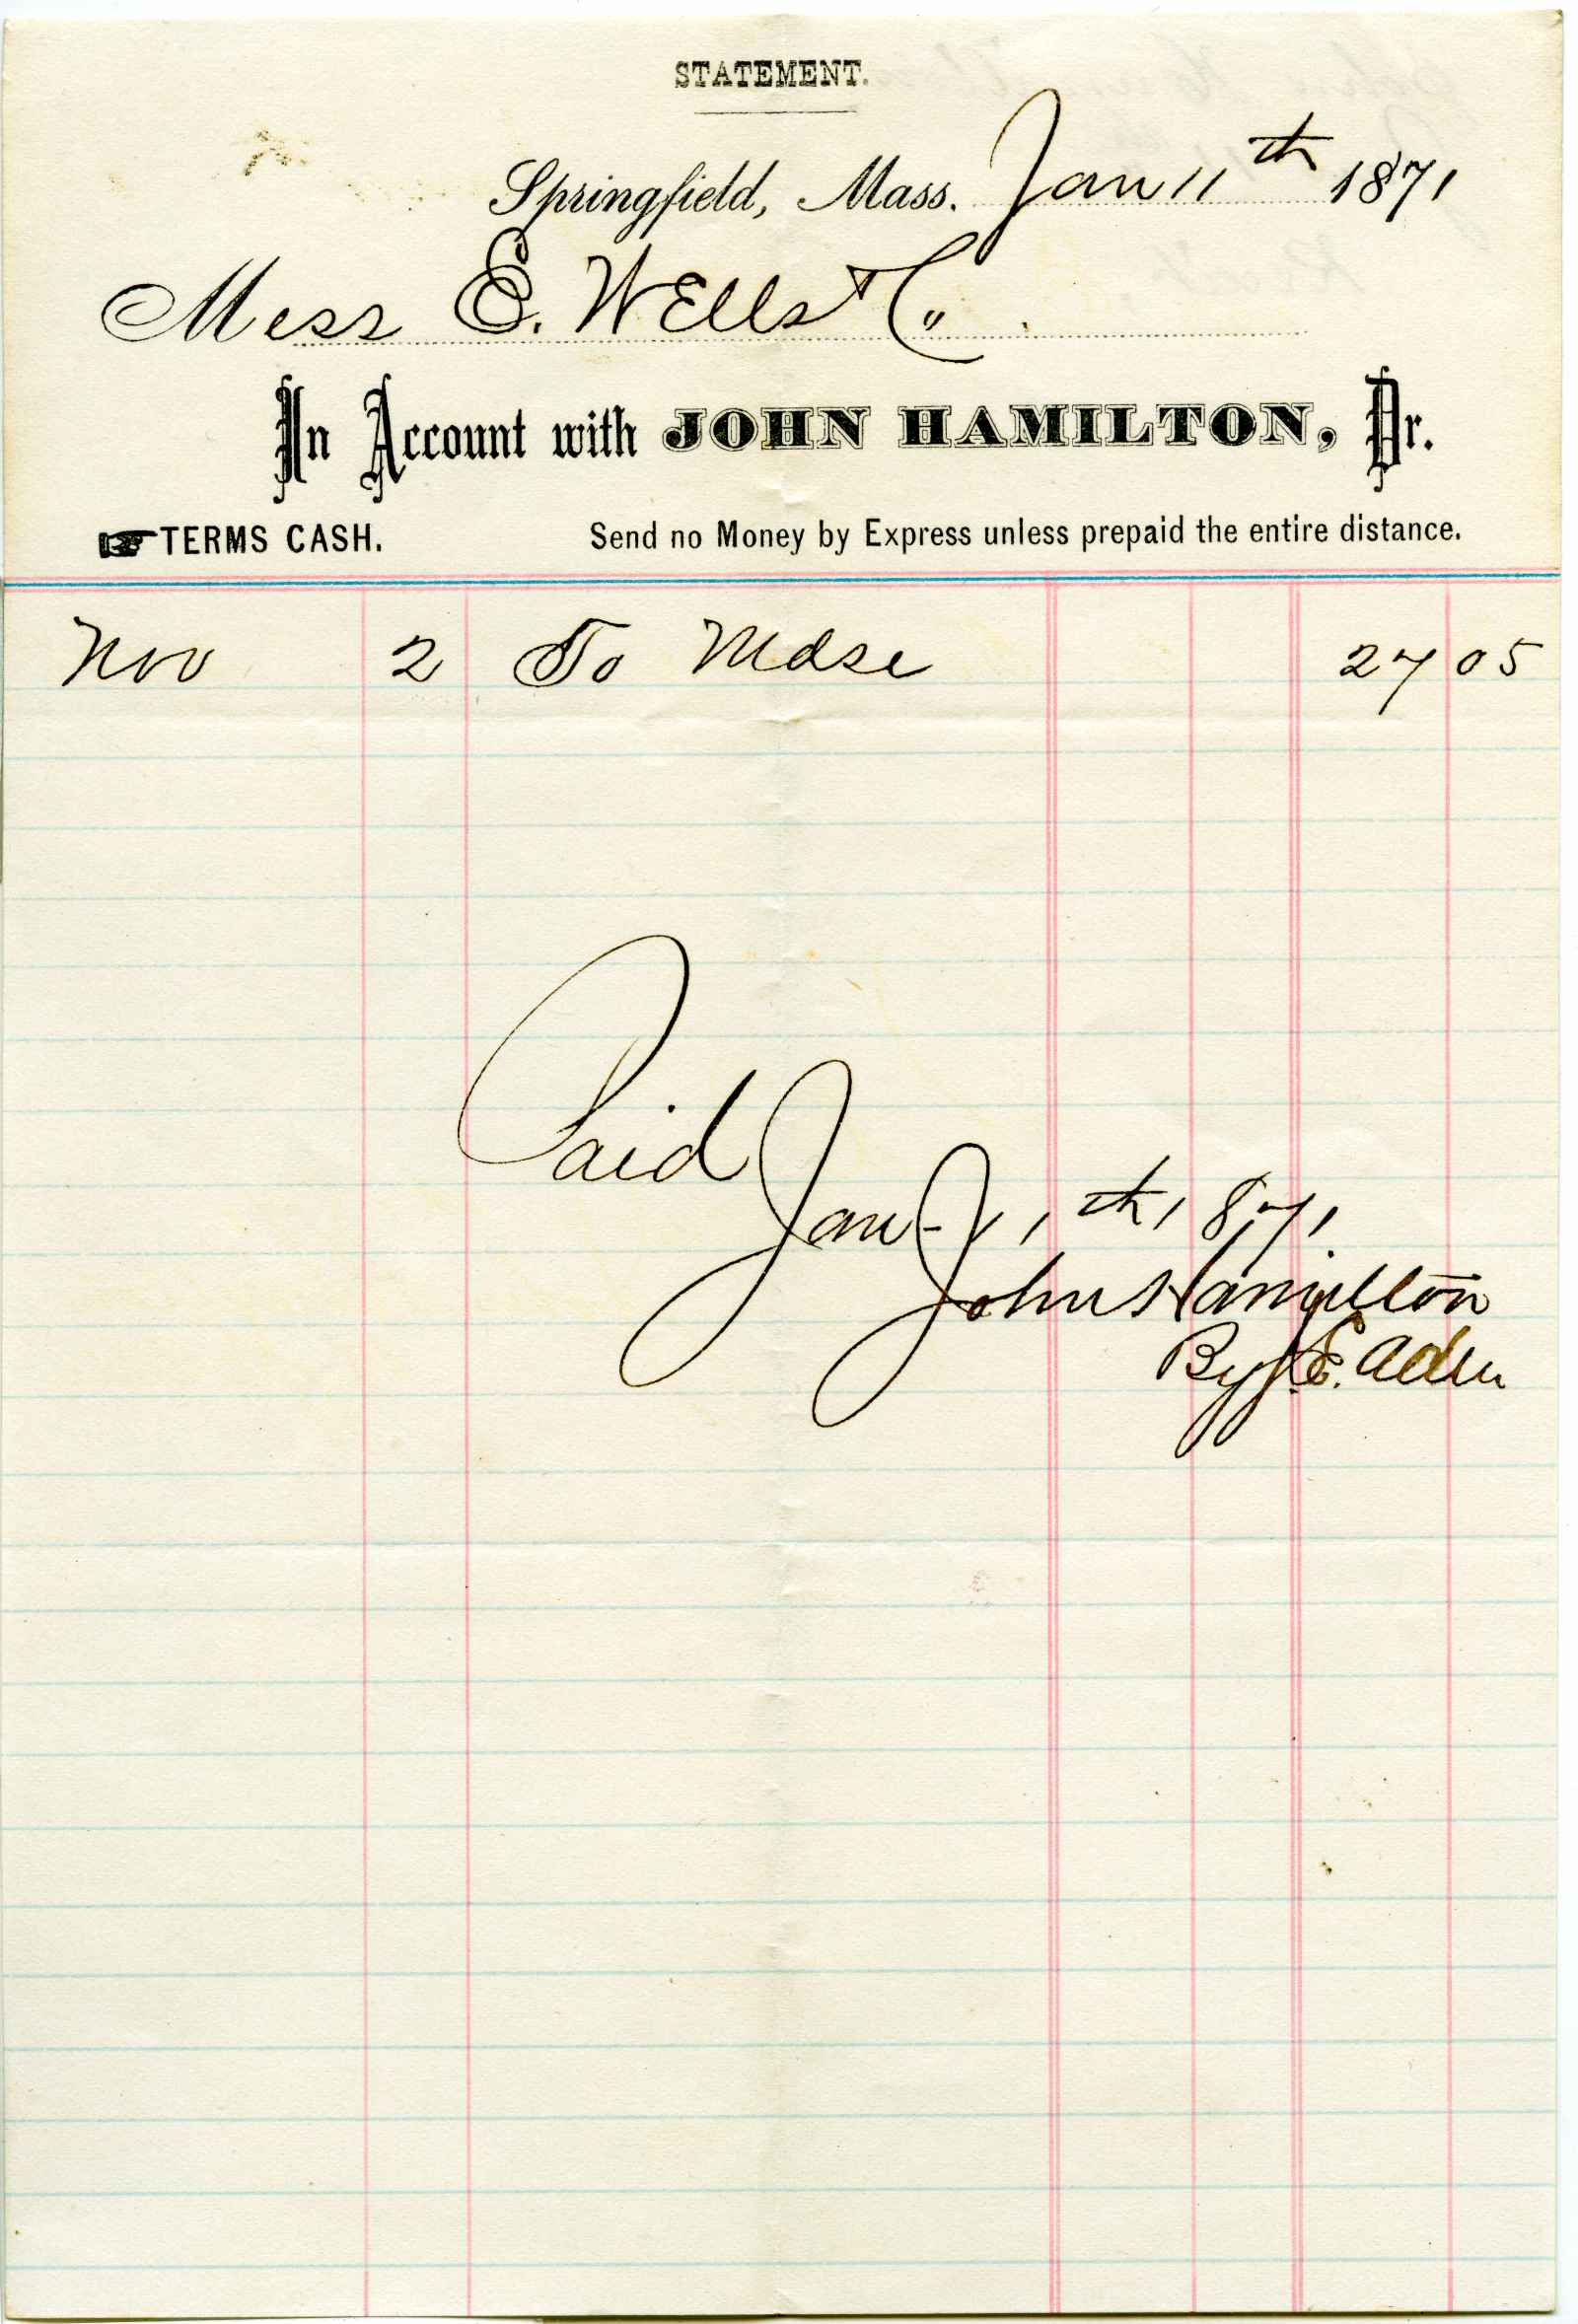 STATEMENT.
Springfield, Mass. Jan 11th 1871
Mess E. Wells & Co.
In Account with JOHN HAMILTON, Dr.
TERMS CASH. Send no Money by Express unless prepaid the entire distance.
Nov 2 To Mdse 27 05
Paid
Jan- 11th 1871
John Hamilton
By E.